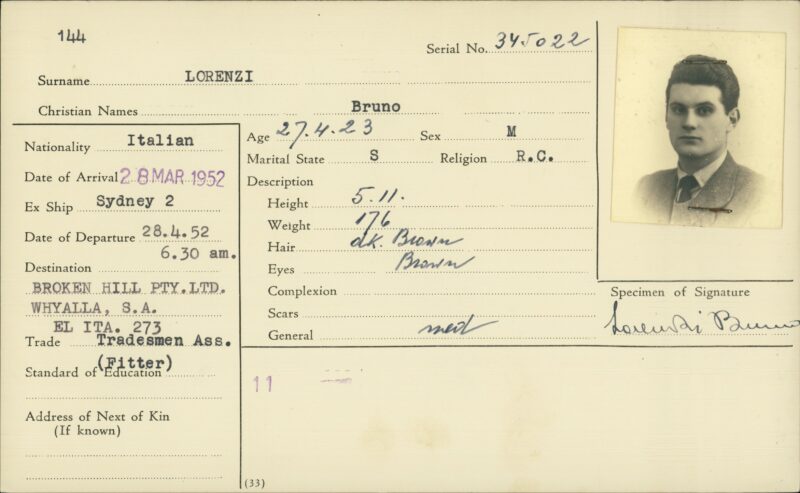 144
Serial No. 345022
Surname LORENZI
Christian Names Bruno
Nationality Italian
Date of Arrival 28 MAR 1952
Ex Ship Sydney 2
Date of Departure 28.4.52
6.30 am.
Destination
BROKEN HILL PTY.LTD.
WHYALLA, S.A.
EL ITA. 273
Trade Tradesmen Ass.
(Fitter)
Standard of Education
Address of Next of Kin
(If known)
Age 27.4.23 Sex M
Marital State S Religion R.C.
Description
Height 5.11.
Weight 176
Hair dk. Brown
Eyes Brown
Complexion
Scars
General med
Specimen of Signature
Lorenzi Bruno
11
(33)